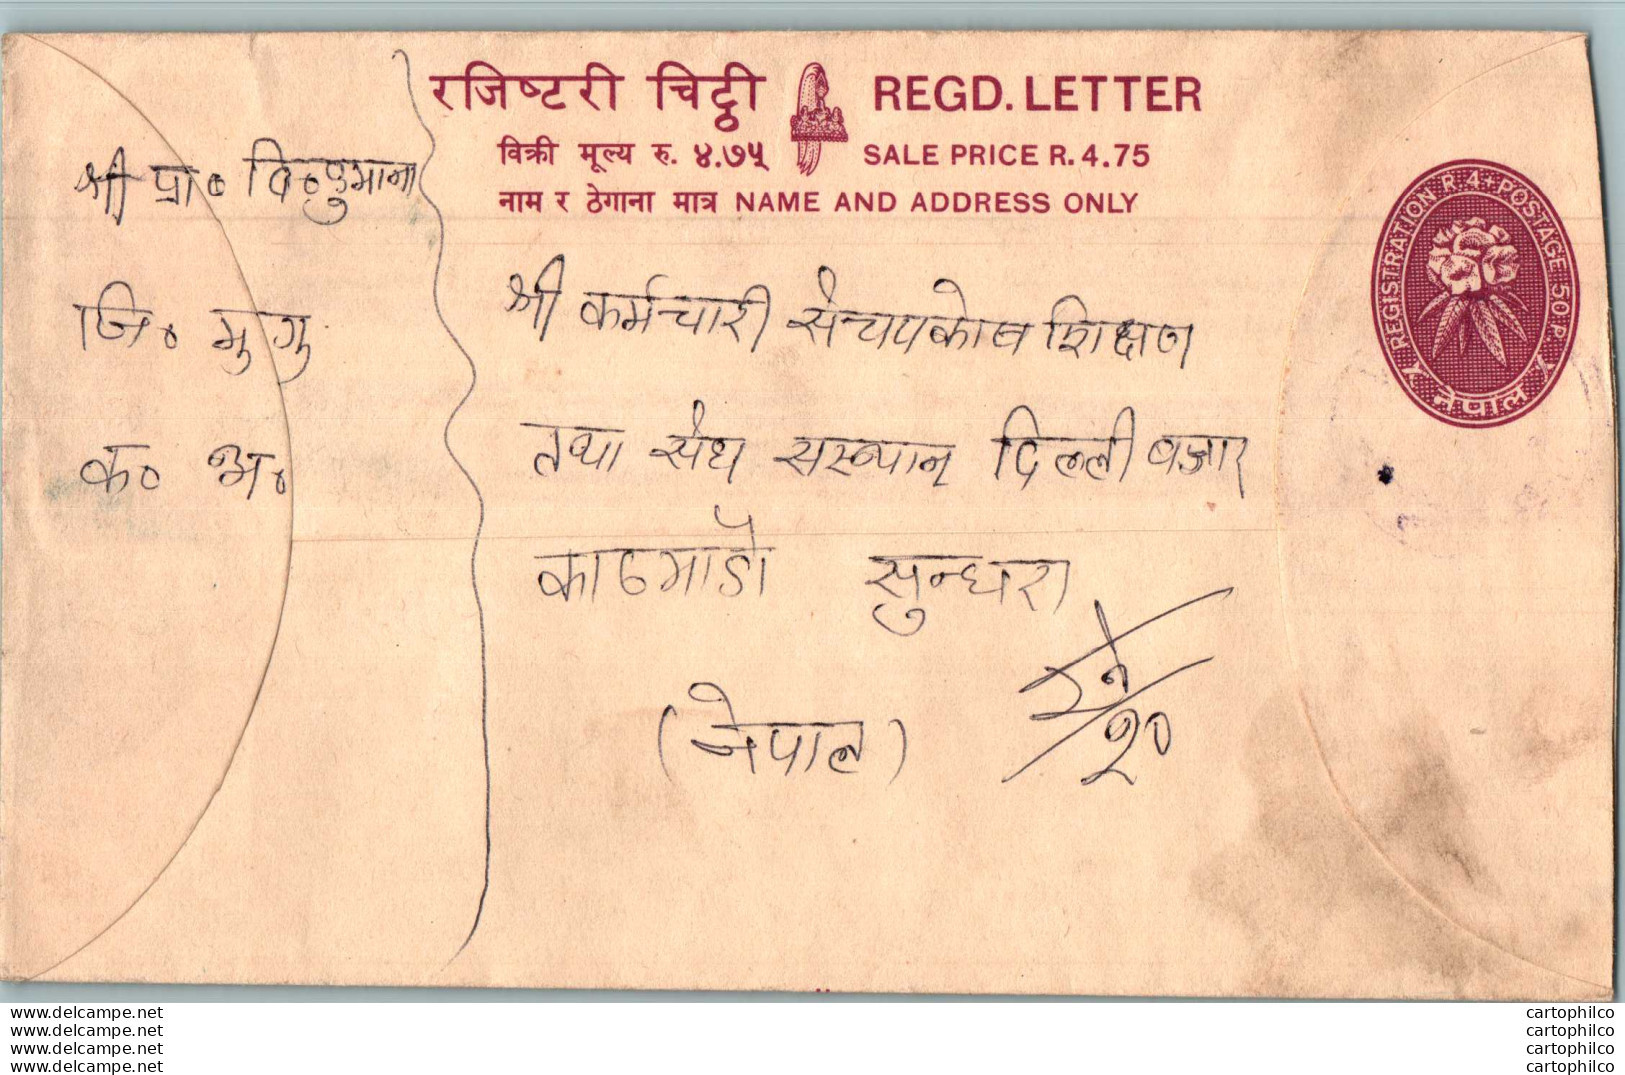 रजिष्टरी चिट्ठी REGD. LETTER
विक्री मूल्य रु. ४.७५ SALE PRICE R. 4.75
नाम र ठेगाना मात्र NAME AND ADDRESS ONLY
REGISTRATION R. 4+ POSTAGE 50 P.
नेपाल
श्री प्रा०
जि० मुगु
क० अ०
श्री कर्मचारी संचयकोष शिक्षण
तथा संघ सस्थान दिल्ली बजार
काठमाडौ सुन्धरा
(नेपाल)
www.delcampe.net cartophilco
www.delcampe.net cartophilco
www.delcampe.net cartophilco
www.delcampe.net cartophilco